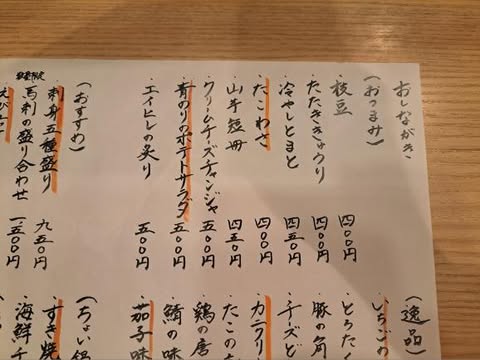 おしながき
(おつまみ)
・枝豆 四〇〇円
・たたききゅうり 四〇〇円
・冷やしとまと 四五〇円
・たこわさ 四〇〇円
・山芋短冊 四五〇円
・クリームチーズチャンジャ 五〇〇円
・青のりのポテトサラダ 五〇〇円
・エイヒレの炙り 五〇〇円
(おすすめ)
・刺身五種盛り 九五〇円
・馬刺の盛り合わせ 一五〇〇円
(逸品)
・いちごの
・とろた
・豚の角
・チーズど
・カニクリ
・たこの
・鶏の唐
・鯖の味
・茄子味
(ちょい鍋
・すき焼
・海鮮チ